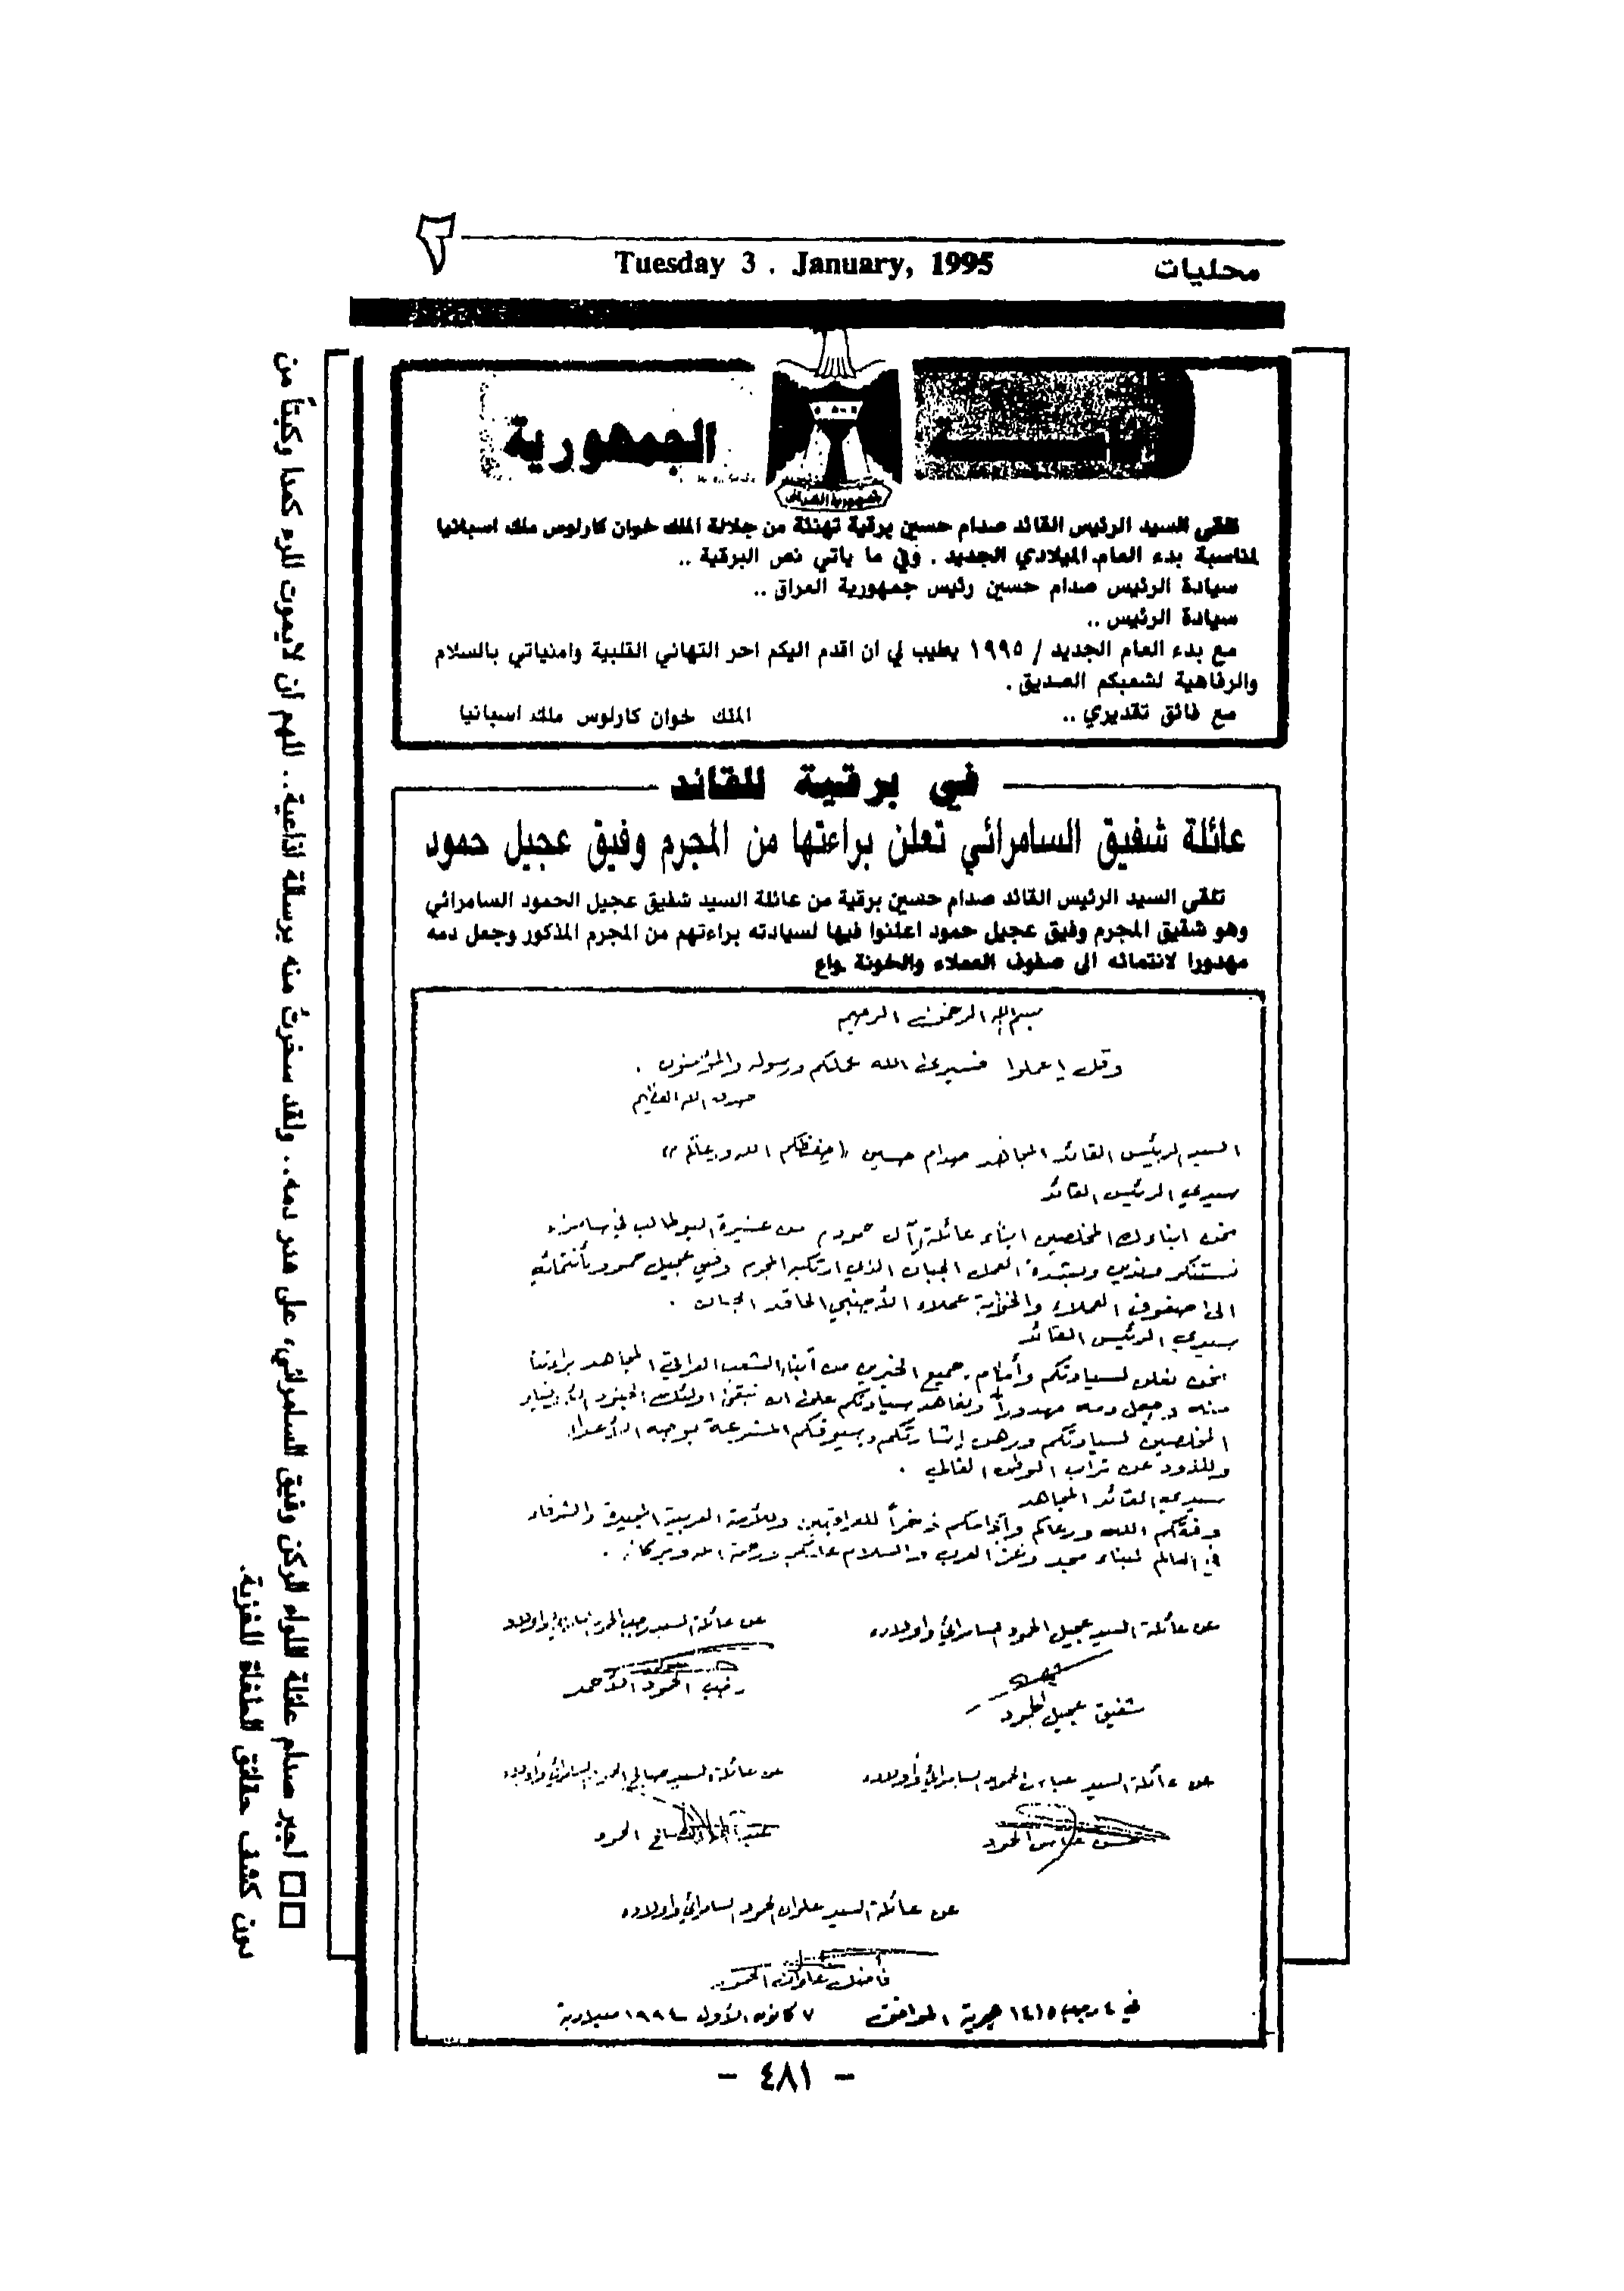 محليات
Tuesday 3 . January, 1995
٢
الجمهورية
جمهورية العراق
تلقى السيد الرئيس القائد صدام حسين برقية تهنئة من جلالة الملك خوان كارلوس ملك اسبانيا
لمناسبة بدء العام الميلادي الجديد . وفي ما ياتي نص البرقية ..
سيادة الرئيس صدام حسين رئيس جمهورية العراق ..
سيادة الرئيس ..
مع بدء العام الجديد / ١٩٩٥ يطيب لي ان اقدم اليكم احر التهاني القلبية وامنياتي بالسلام
والرفاهية لشعبكم الصديق .
مع فائق تقديري ..
الملك خوان كارلوس ملك اسبانيا
في برقية للقائد
عائلة شفيق السامرائي تعلن براءتها من المجرم وفيق عجيل حمود
تلقى السيد الرئيس القائد صدام حسين برقية من عائلة السيد شفيق عجيل الحمود السامرائي
وهو شقيق المجرم وفيق عجيل حمود اعلنوا فيها لسيادته براءتهم من المجرم المذكور وجعل دمه
مهدورا لانتمائه الى صفوف العملاء والخونة .واع
بسم الله الرحمن الرحيم
وقل اعملوا فسيرى الله عملكم ورسوله والمؤمنون .
صدق الله العظيم
السيد الرئيس القائد المجاهد صدام حسين ((حفظكم الله ورعاكم))
سيدي الرئيس القائد
نحن ابناءك المخلصين ابناء عائلة آل حمود من عشيرة البو طالب في سامراء
نستنكر وندين وبشدة العمل الجبان الذي ارتكبه المجرم وفيق عجيل حمود بأنتمائه
الى صفوف العملاء والخونة عملاء الأجنبي الحاقد الجبان .
سيدي الرئيس القائد
نحن نعلن لسيادتكم وأمام جميع الخيرين من أبناء الشعب العراقي المجاهد براءتنا
منه وجعل دمه مهدوراً ونعاهد سيادتكم على ان نبقى اولئك الجنود الابناء
المخلصين لسيادتكم ورهن إشارتكم وسيوفكم المشرعة بوجه الأعداء
وللذود عن تراب الوطن الغالي .
سيدي القائد المجاهد
وفقكم الله ورعاكم وأدامكم ذخراً للعراقيين وللأمة العربية المجيدة والشرفاء
في العالم لبناء مجد وعز العرب والسلام عليكم ورحمة الله وبركاته .
عن عائلة السيد عجيل الحمود السامرائي واولاده
عن عائلة السيد رجب الحمود السامرائي واولاده
شفيق عجيل الحمود
رجب الحمود الأحمد
عن عائلة السيد عباس الحمود السامرائي واولاده
عن عائلة السيد صالح الحمود السامرائي واولاده
عباس الحمود
صالح الحمود
عن عائلة السيد علوان الحمود السامرائي واولاده
فاضل علوان الحمود
في ٤ رجب ١٤١٥ هجرية الموافق ٧ كانون الأول ١٩٩٤ ميلادية
□□ اجبر صدام عائلة اللواء الركن وفيق السامرائي، على هدر دمه.. ولقد سخرتُ منه برسالة اذاعية.. اللهم ان لايموت المرء كمدا وكبتاً من
دون كشف حقائق الطغاة المخزية.
- ٤٨١ -